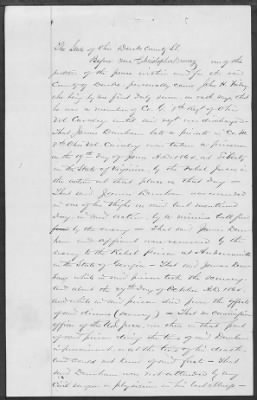 The State of Ohio Darke County SS.
Before me Christopher one of the
justices of the peace within and for the said
County of Darke personally came John H.
who being by me first duly sworn on oath says that
he was a member of Co. G 8th Regt of Ohio
Vol Cavalry until said regt was discharged
That James Dunham late a private in Co
8th Ohio Vol Cavalry was taken a prisoner
on the 19th day of June A.D. 1864 at Liberty
in the State of Virginia by the rebel forces in
the action at that place in that day
That said James Dunham was wounded
in one of his thighs in said last mentioned
day in said action, by a minnie ball fired
by the enemy That said James Dun
ham and affiant were removed by the
enemy to the Rebel Prison at Andersonville
in the State of Georgia That said James Dun
ham while in said prison took the scurvy
and about the 27th day of October A.D. 1864
and while in said prison died from the effects
of said disease (scurvy) That no commission
officer of the U.S. forces was then in that part
of said prison during the time of said Dunham
imprisonment or at the time of his death
and could not know of said fact That
said Dunham was not attended by any
surgeon or physician in his last illness